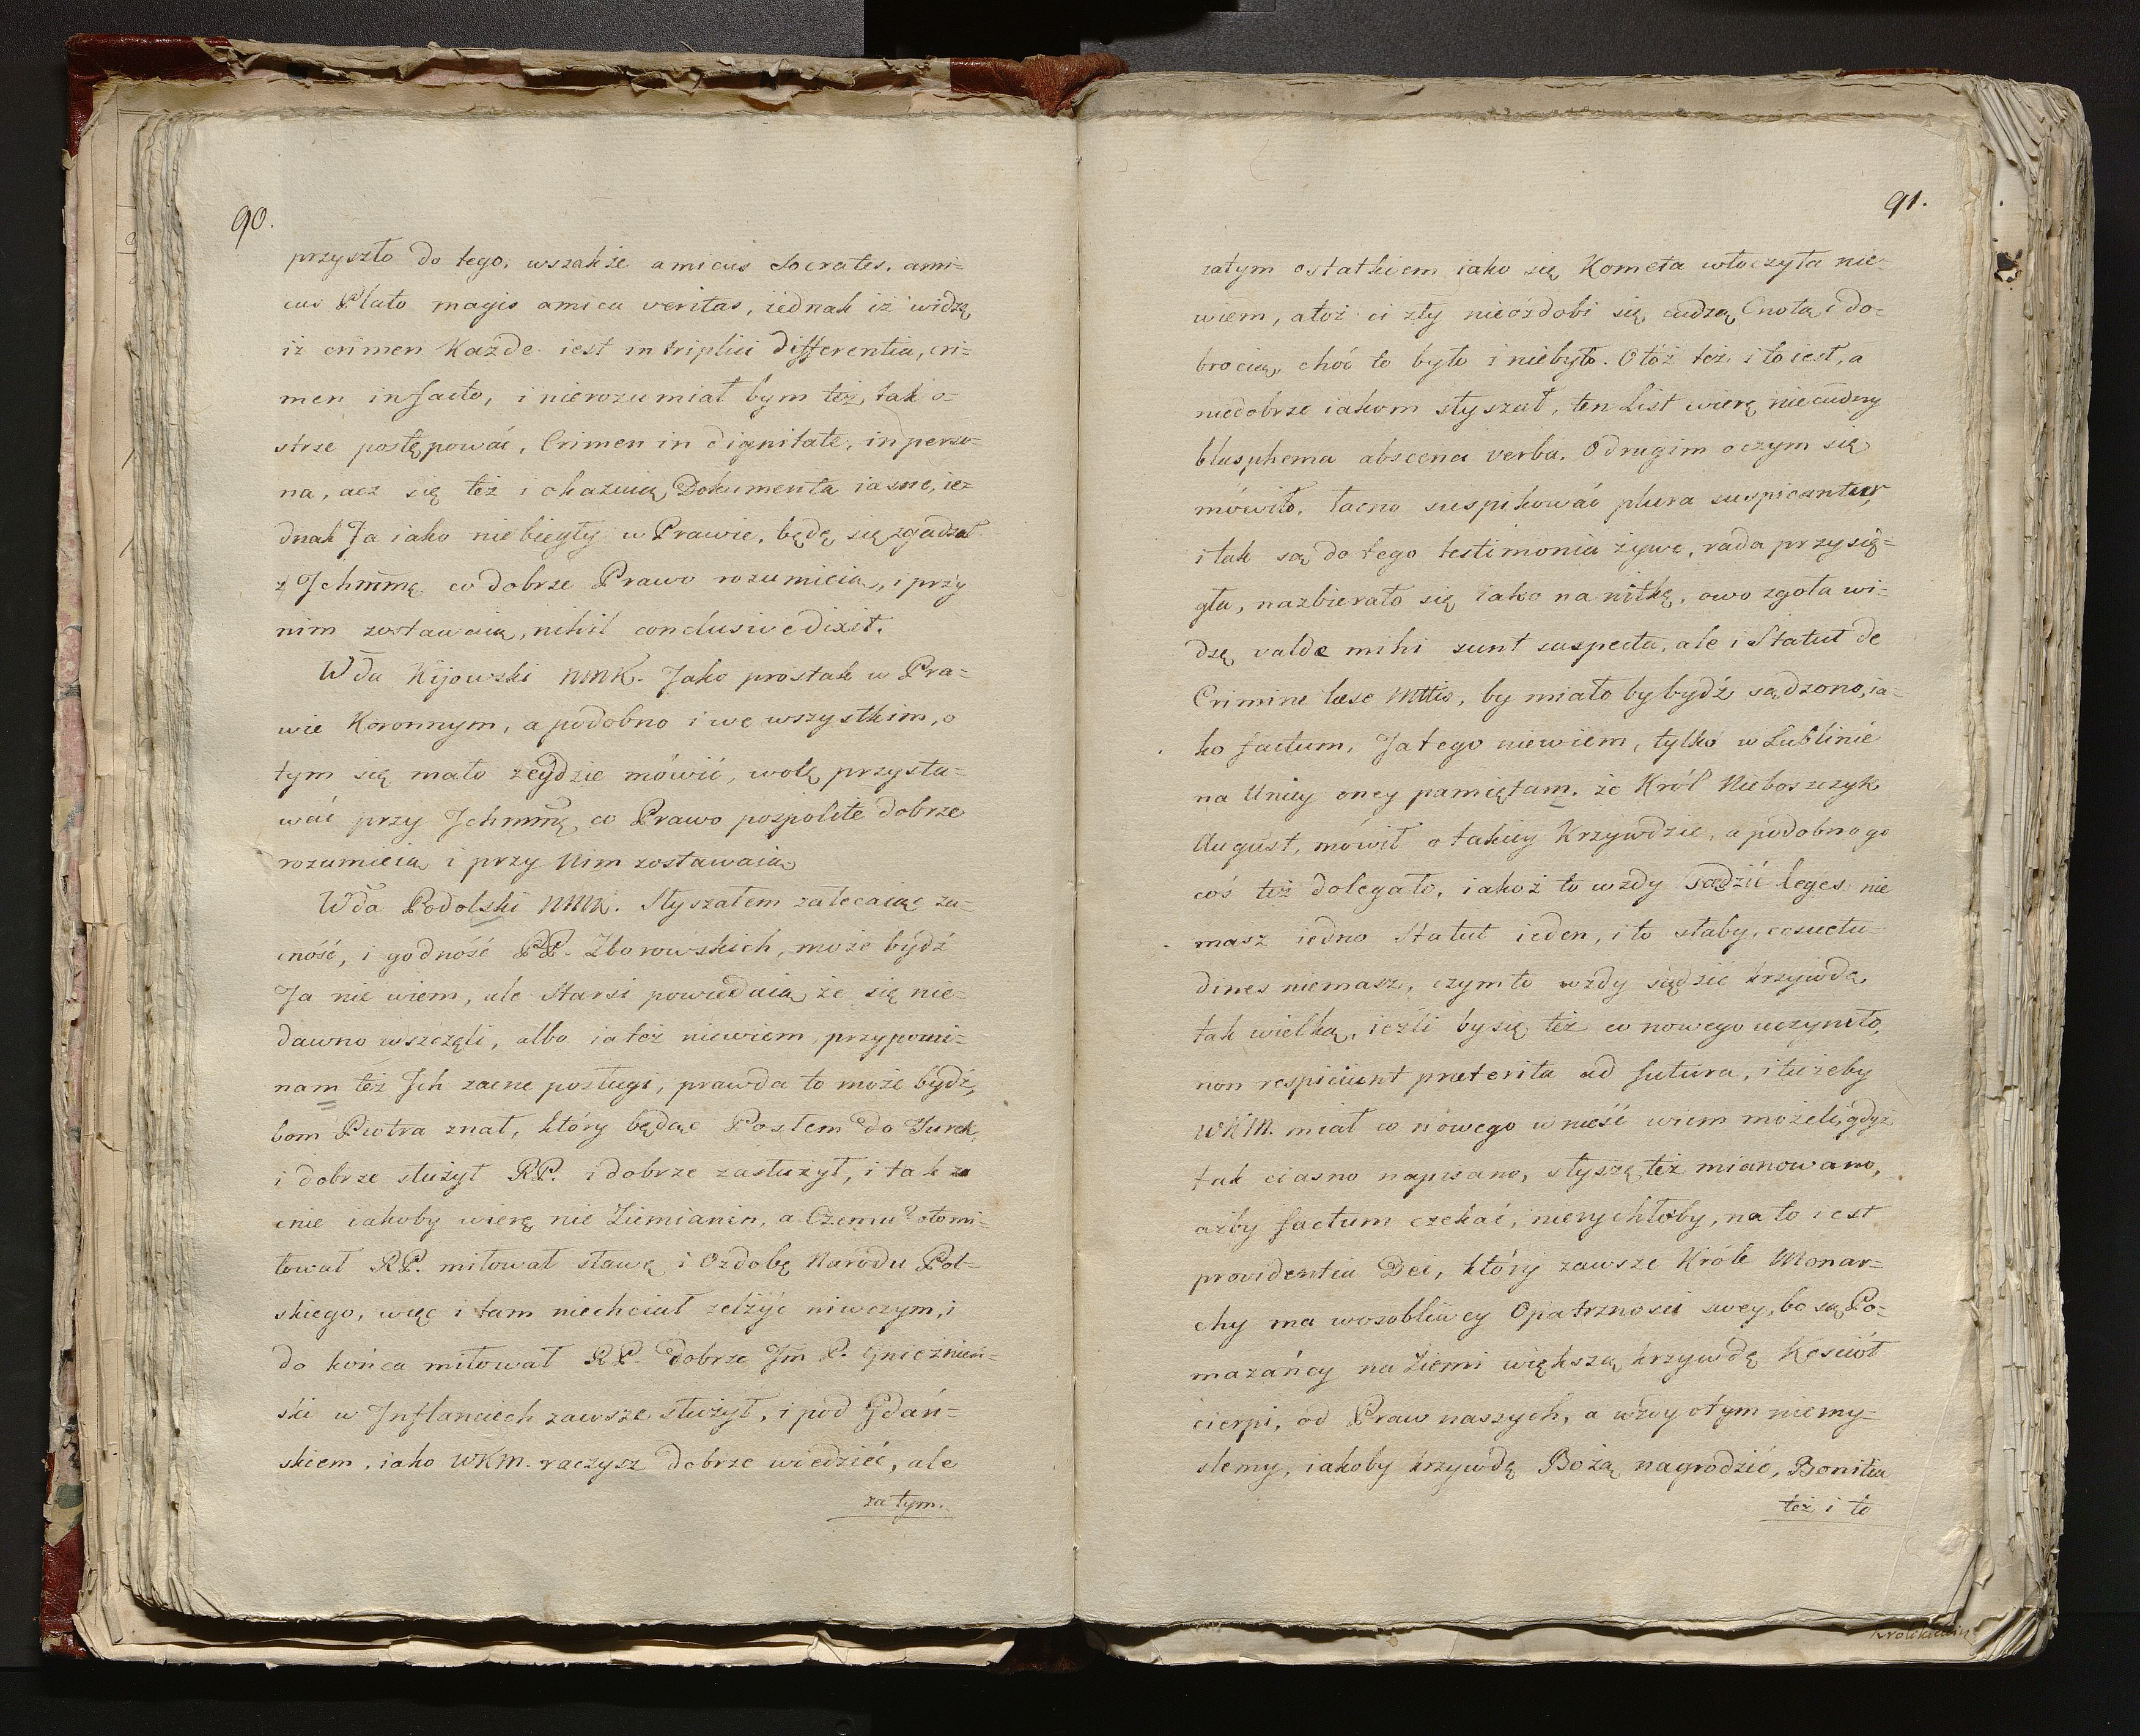 90.
przyszło do tego, wszakże amicus Socrates, ami=
cus Plato magis amica veritas, iednak iż widzę
iż crimen Każde iest in triplici differentia, cri=
men in facto, i nierozumiał bym też, tak o=
strze postępować, Crimen in dignitate, in perso=
na, acz się też i okazuią Dokumenta iasne, ie=
dnak Ja iako niebiegły w Prawie, będę się zgadzał
z Jchmmę co dobrze Prawo rozumieią, i przy
nim zostawaią, nihil conclusive dixit.
Wda Kijowski NMK. Jako prostak w Pra=
wie Koronnym, a podobno i we wszystkim, o
tym się mało zeydzie mówić, wolę przysta=
wać przy Jchmmę, co Prawo pospolite dobrze
rozumieią i przy Nim zostawaią
Wda Podolski NMK. Słyszałem zalecaiąc za=
cność, i godność PP. Zborowskich, może bydź
Ja nie wiem, ale Starsi powiedaią że się nie=
dawno wszczęli, albo ia też niewiem, przypomi=
nam też Jch zacne posługi, prawda to może bydź,
bom Piotra znał, który będąc Posłem do Turek,
i dobrze służył RP. i dobrze zasłużył, i tak za
cnie iakoby wierę nie Ziemianin, a Czemu? oto mi=
łował RP. miłował sławę i Ozdobę Narodu Pol=
skiego, więc i tam niechciał zelżyć niwczym, i
do końca miłował RP. dobrze Jm P. Gnieźnień=
ski w Jnflanciech zawsze służył, i pod Gdań=
skiem, iako WKM. raczysz dobrze wiedzieć, ale
za tym.
91.
zatym ostatkiem iako się Kometa włoczyła nie=
wiem, atoż ci zły nieozdobi się cudzą Cnotą i do=
brocią, choć to było i niebyło. Otóż też i to iest, a
niedobrze iakom słyszał, ten List wierę niecudny
blasphema abscena verba. O drugim oczym się
mówiło, łacno suspikować plura suspicantur,
i tak są do tego testimonia żywe, rada przysię=
gła, nazbierało się iako na nitkę, owo zgoła wi=
dzę valde mihi sunt suspecta, ale i Statut de
Crimine læse Mttis, by miało by bydź sądzono, ia=
ko factum, Ja tego niewiem, tylko w Lublinie
na Uniey oney pamiętam, że Król Nieboszczyk
August, mówił o takiey Krzywdzie, a podobno go
coś też dolegało, iakoż to wżdy sądzić leges nie
masz iedno Statut ieden, i to słaby, cosuetu=
dines niemasz, czymto wżdy sądzić krzywdę
tak wielką, ieżli by się też co nowego uczyniło,
non respiciunt præterita ad futura, i tu żeby
WKM. miał co nowego wnieść wiem możeli, gdyż
tak ciasno napisano, słyszę też mianowano,
ażby factum czekać, nierychłoby, na to iest
providentia Dei, który zawsze Króle Monar=
chy ma wosobliwey Opatrznosci swey, bo są Po=
mazańcy na Ziemi większą krzywdę Kosciół
cierpi, od Praw naszych, a wżdy otym niemy=
slemy, iakoby krzywdę Bożą nagrodzić, Bonitia
też i to